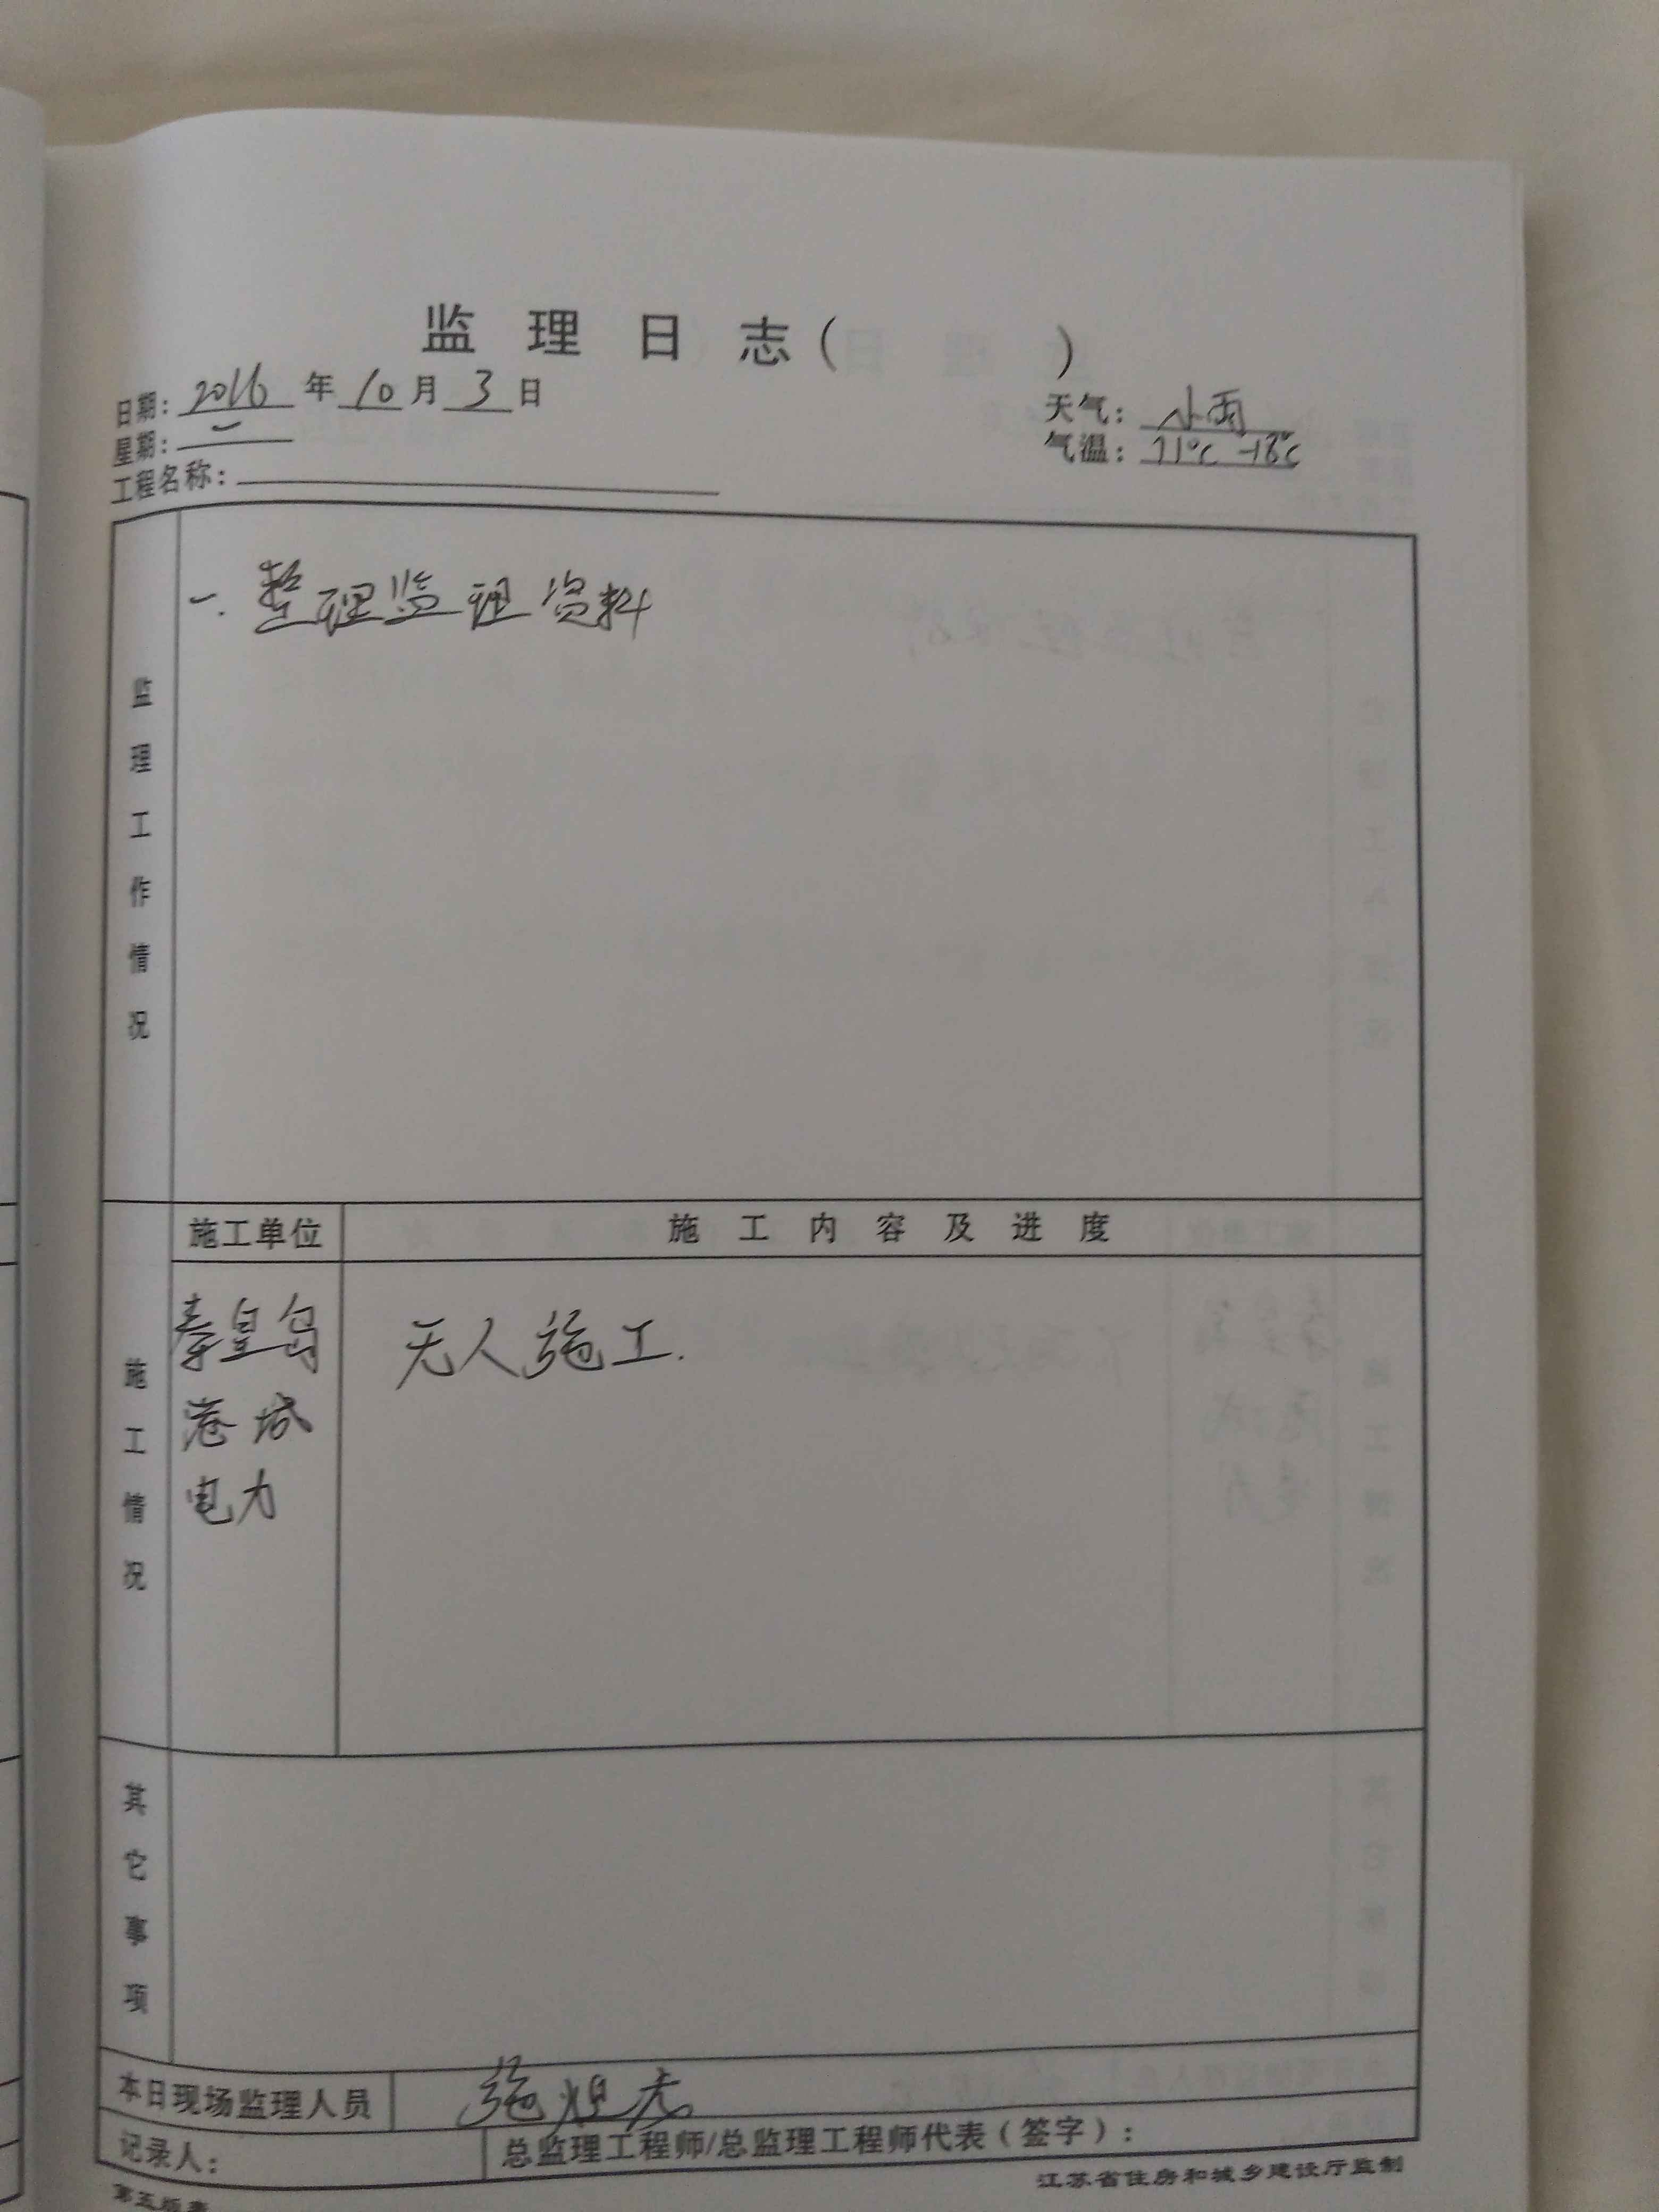 监理日志( )
日期: 2016 年 10 月 3 日
天气: 小雨
星期: 一
气温: 21℃-18℃
工程名称:
监理工作情况
一. 整理监理资料
施工单位
施工内容及进度
施工情况
秦皇岛
港城
电力
无人施工.
其它事项
本日现场监理人员
施
记录人:
总监理工程师/总监理工程师代表(签字):
江苏省住房和城乡建设厅监制
第五版表